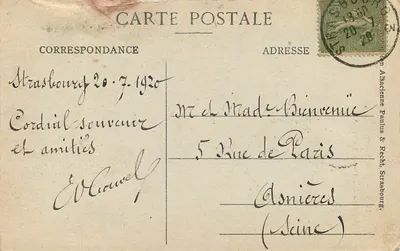 CARTE POSTALE
CORRESPONDANCE
ADRESSE
Strasbourg 20-7-1920
Cordial souvenir
et amitiés
M et Madᵉ Bienvenüe
5 Rue de Paris
Asnières
(Seine)
STRASBOURG
20 - 7
Alsacienne Paulus & Recht, Strasbourg.